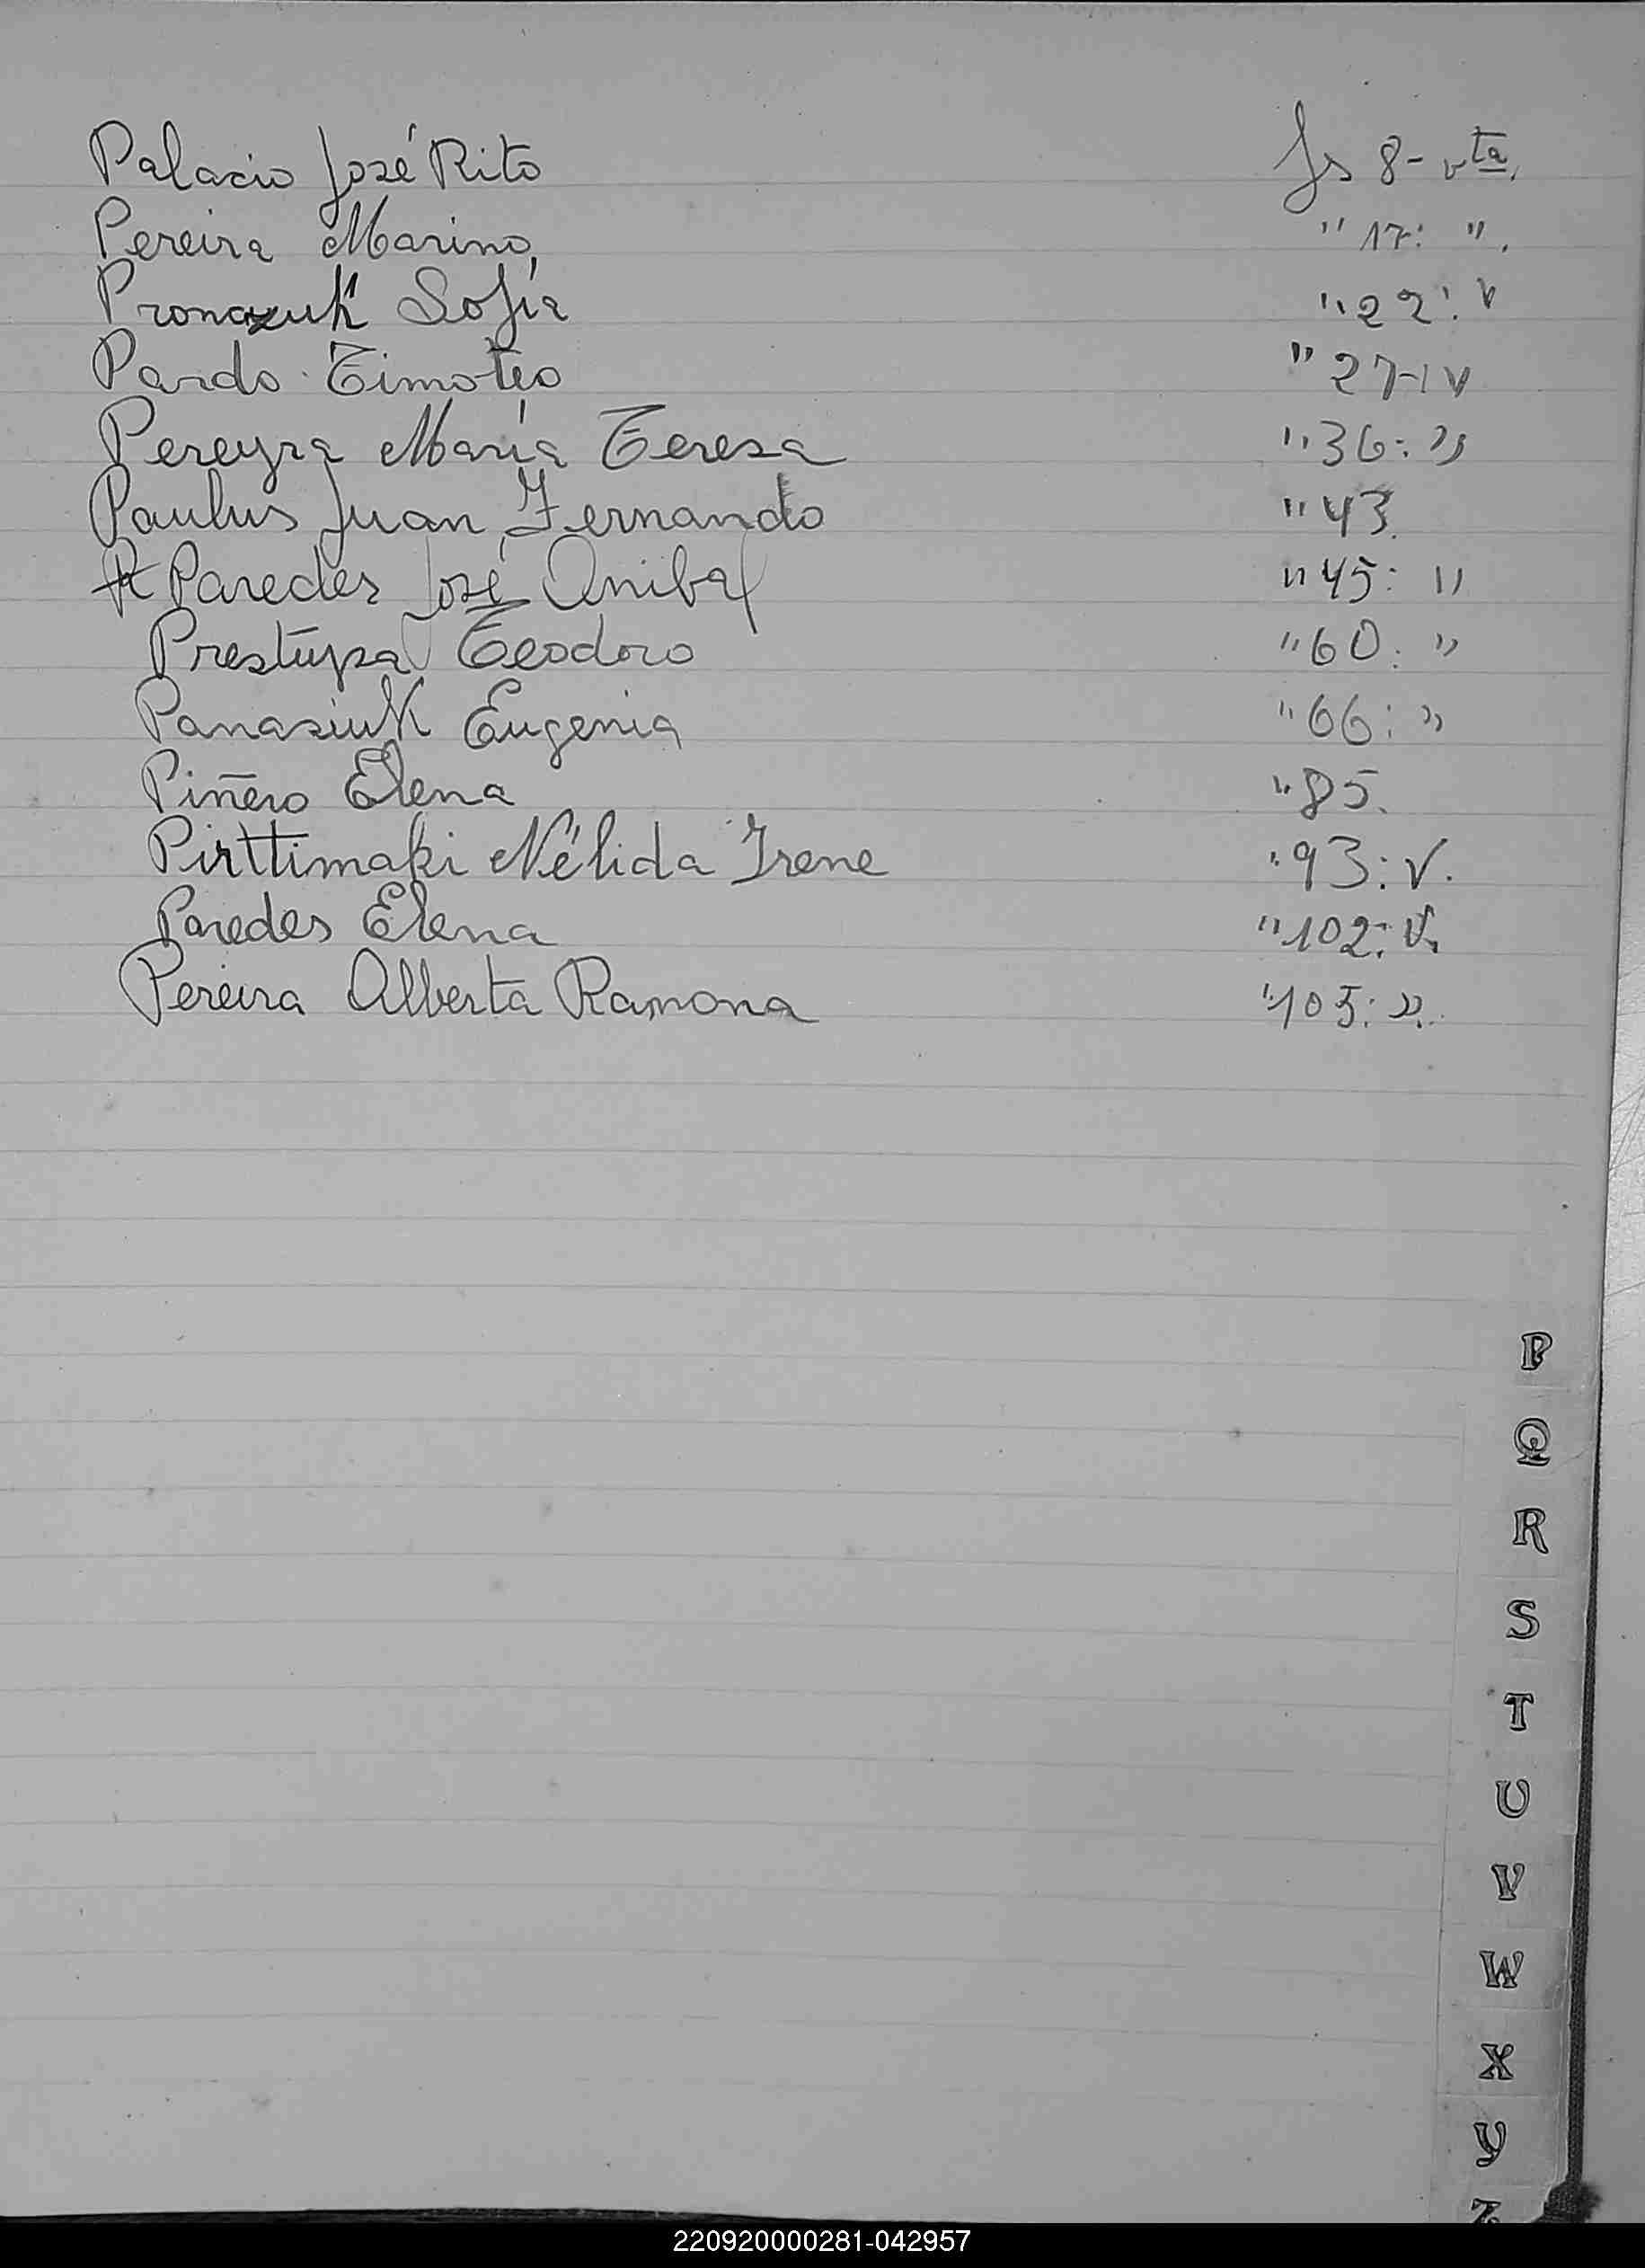 Palacio José Rito fs 8- vta.
Pereira Marino, " 17: ".
Pronazuk Sofía " 22: v
Pardo Timoteo " 27- v
Pereyra María Teresa " 36: "
Paulus Juan Fernando " 43.
Paredes José Anibal " 45: "
Prestupa Teodoro " 60: "
Panasiuk Eugenia " 66: "
Piñero Elena " 85.
Pirttimaki Nélida Irene " 93: v.
Paredes Elena " 102: v.
Pereira Alberta Ramona " 105: ".
P
Q
R
S
T
U
V
W
X
Y
Z
220920000281-042957